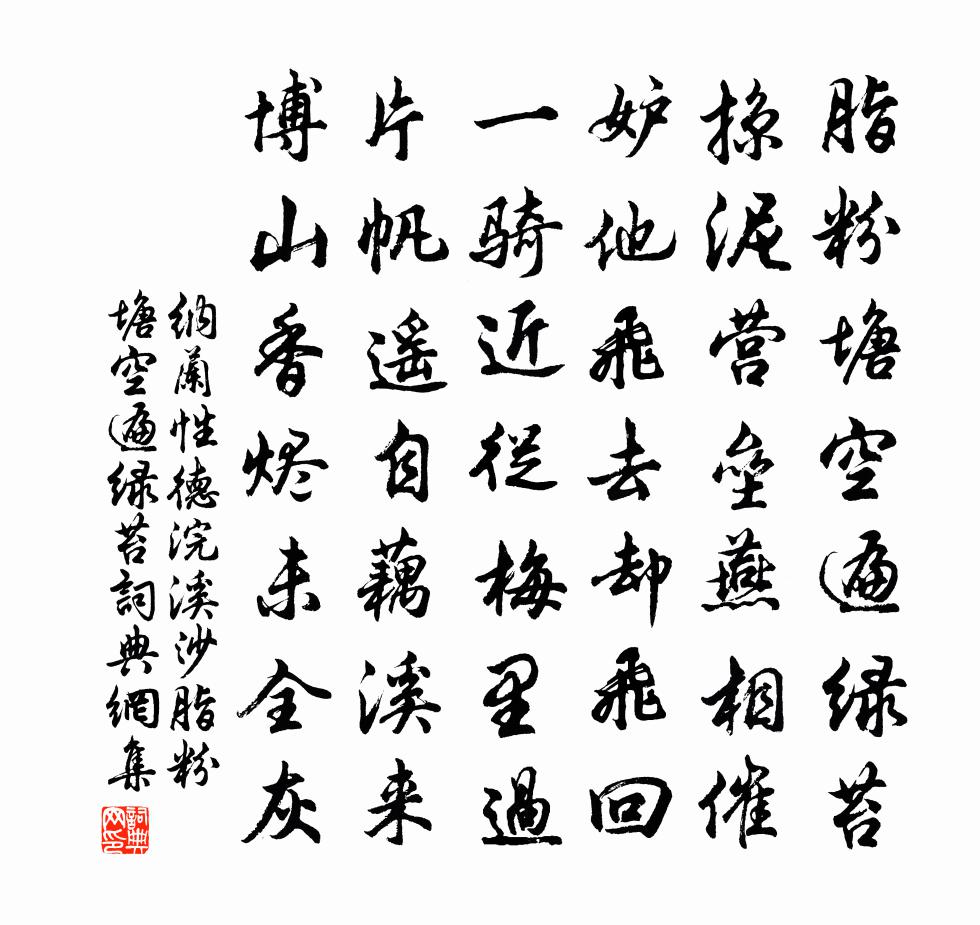 脂粉塘空遍绿苔
掠泥营垒燕相催
妒他飞去却飞回
一骑近从梅里过
片帆遥自藕溪来
博山香烬未全灰
纳蘭性德浣溪沙脂粉
塘空遍绿苔詞典網集
詞典网印